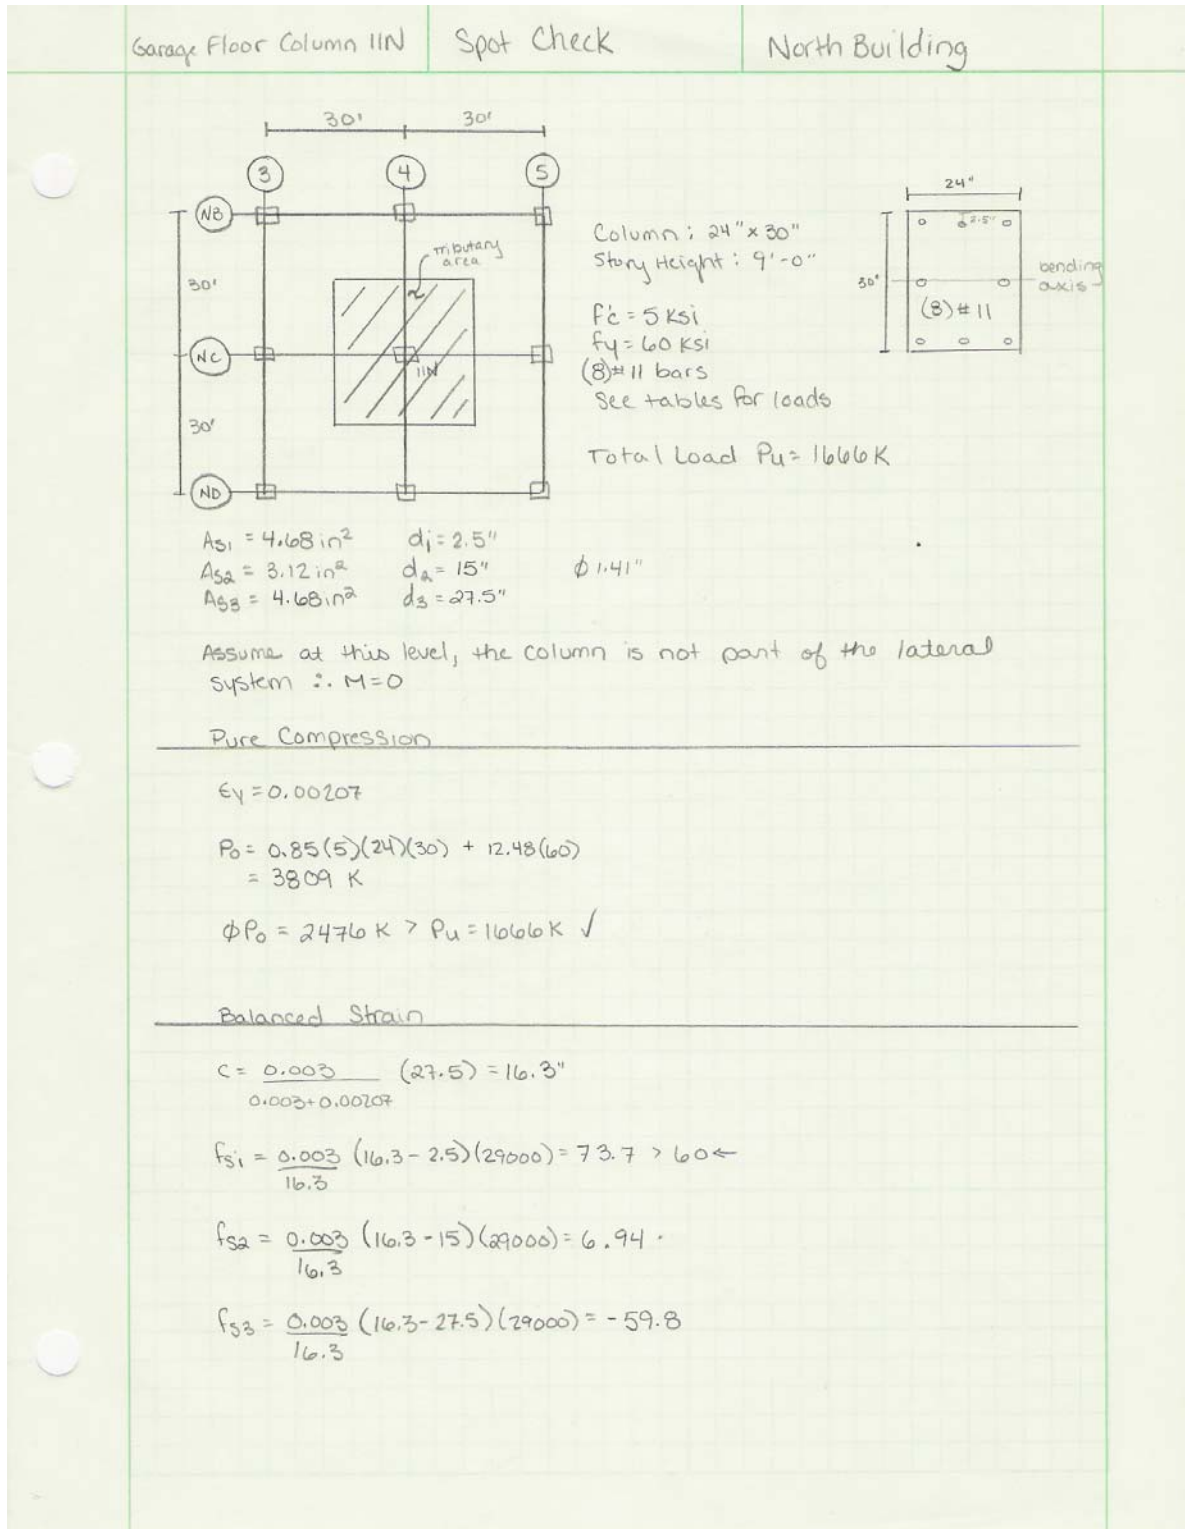 Garage Floor Column 11N
Spot Check
North Building
30' 30'
3 4 5
NB
NC
ND
30'
30'
Tributary
area
11N
Column: 24"x 30"
Story Height: 9'-0"
f'c = 5 ksi
fy = 60 ksi
(8)#11 bars
See tables for loads
Total Load Pu = 1666 K
24"
2.5"
30"
bending
axis
(8) # 11
As1 = 4.68 in² d1 = 2.5"
As2 = 3.12 in² d2 = 15" ϕ 1.41"
As3 = 4.68 in² d3 = 27.5"
Assume at this level, the column is not part of the lateral
system ∴ M=0
Pure Compression
εy = 0.00207
Po = 0.85(5)(24)(30) + 12.48(60)
= 3809 K
ϕPo = 2476 K > Pu = 1666 K ✓
Balanced Strain
c = 0.003 (27.5) = 16.3"
0.003+0.00207
fs1 = 0.003 (16.3 - 2.5)(29000) = 73.7 > 60 ←
16.3
fs2 = 0.003 (16.3 - 15)(29000) = 6.94
16.3
fs3 = 0.003 (16.3 - 27.5)(29000) = -59.8
16.3